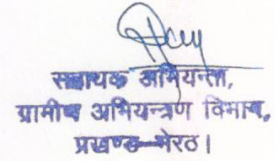 सहायक अभियन्ता,
ग्रामीण अभियन्त्रण विभाग,
प्रखण्ड-मेरठ।